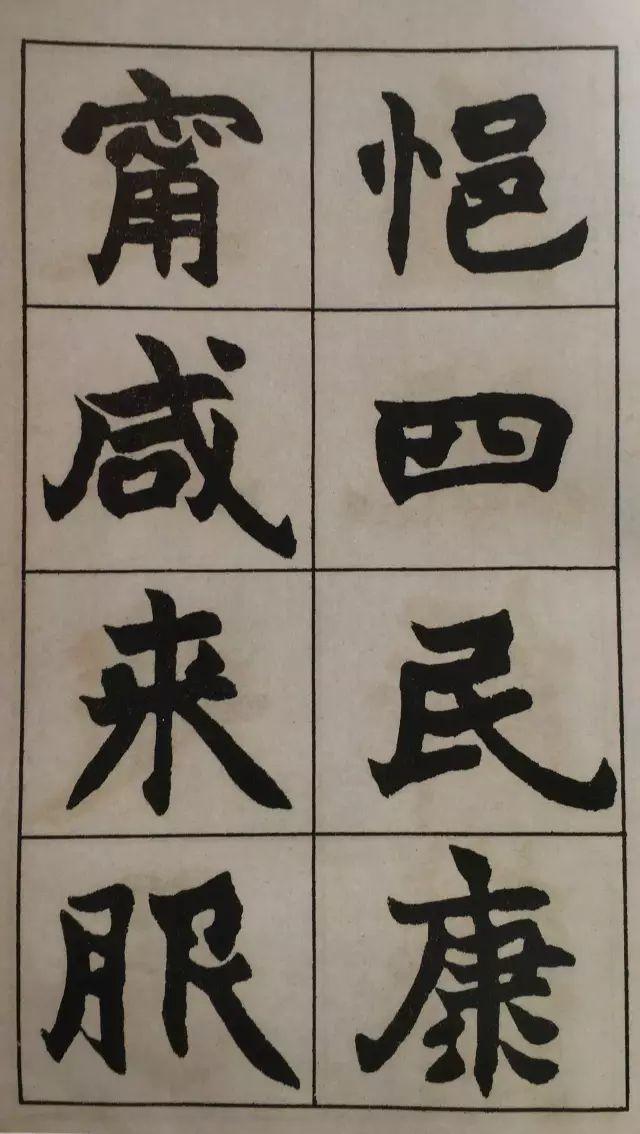 悒四民康
甯咸来服